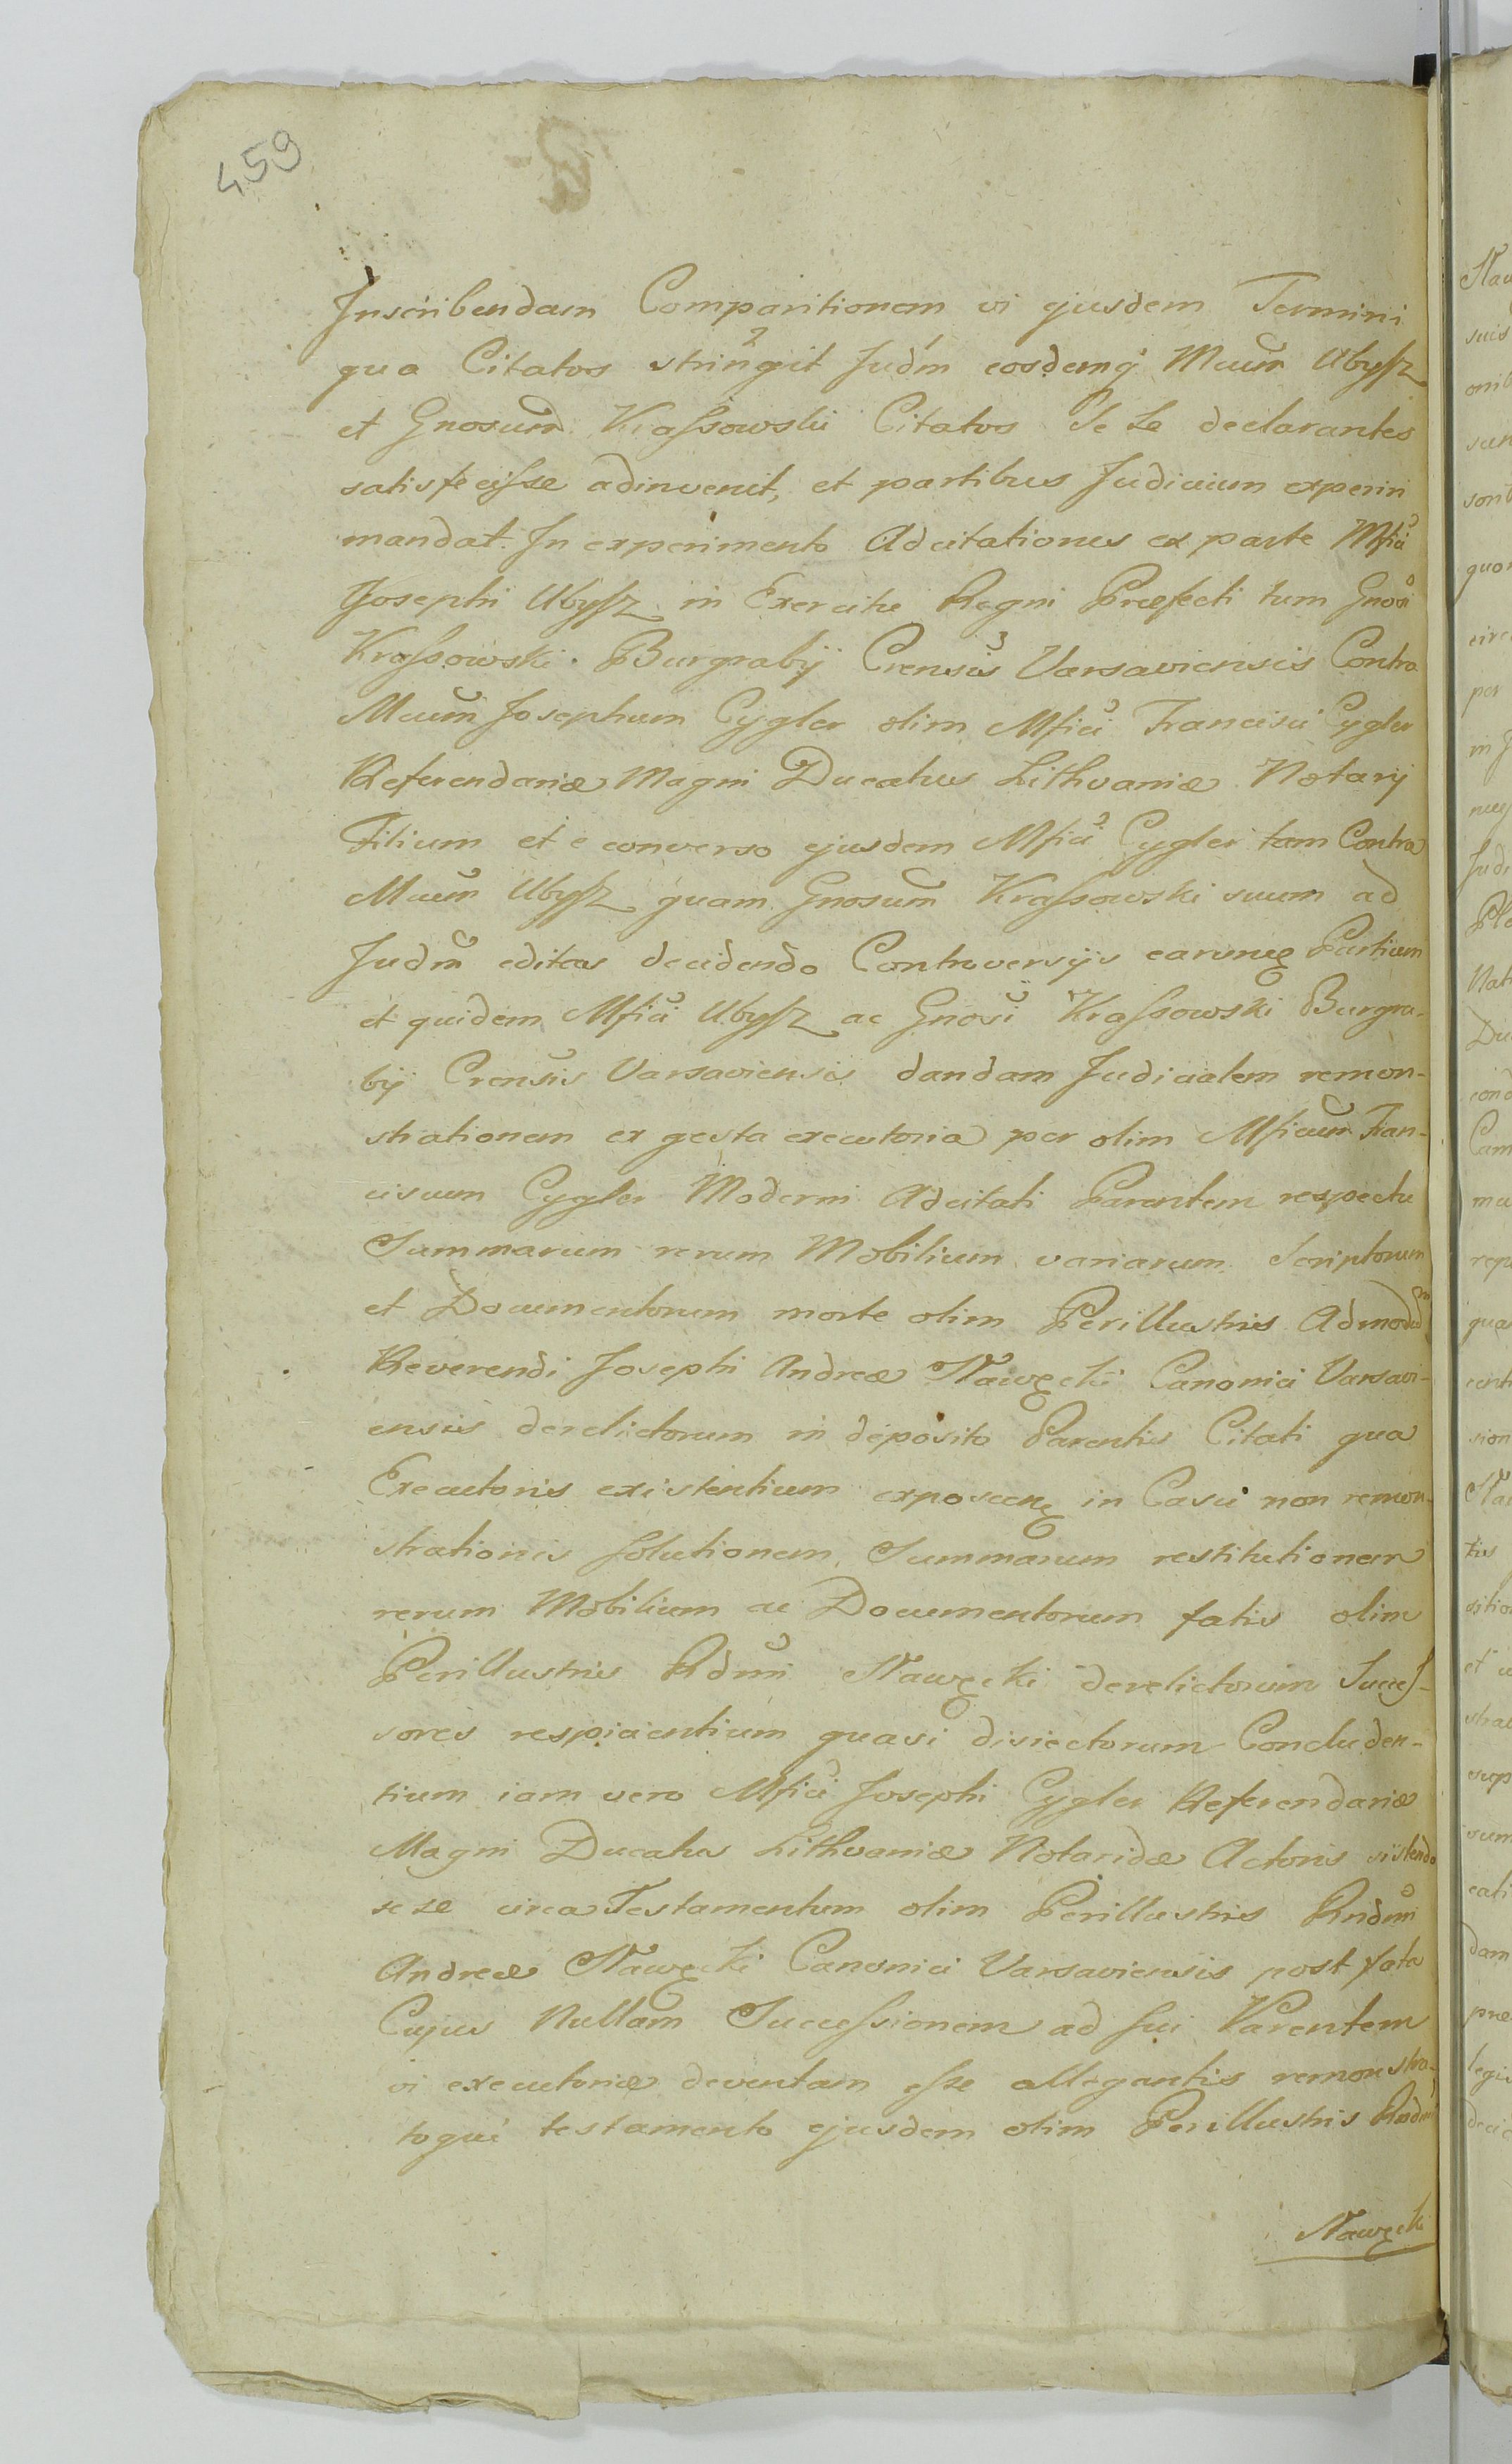 459
Inscribendam Comparitionem vi ejusdem Termini
qua Citatos stringit Judm eosdemq Mcum Ubysz
et Gnosum Krassowski Citatos Se se declarantes
satisfecisse adinvenit, et partibus Judicium experiri
mandat. In experimento Adcitationes ex parte Mfici
Josephi Ubysz in Exercitu Regni Præfecti tum Gnosi
Krassowski Burgrabij Crensis Varsaviensis Contra
Mcum Josephum Cygler olim Mfici Francisci Cygler
Referendariæ Magni Ducatus Lithvaniæ Notarij
Filium et e converso ejusdem Mfici Cygler tam Contra
Mcum Ubysz quam Gnosum Krassowski suum ad
Judm editas decidendo Controversijs earumq Partium
et quidem Mfici Ubysz ac Gnosi Krassowski Burgra-
bij Crensis Varsaviensis dandam Judicialem remon-
strationem ex gesta executoria per olim Mficum Fran-
ciscum Cygler Moderni Adcitati Parentem respectu
Summarum rerum Mobilium variarum Scriptorum
et Documentorum morte olim Perillustris Admodum
Reverendi Josephi Andreæ Nawęcki Canonici Varsavi-
ensis derelictorum in deposito Parentis Citati qua
Executoris existentium exposcenq in Casu non remon-
strationis Solutionem Summarum restitutionem
rerum Mobilium ac Documentorum fatis olim
Perillustris Rdmi Nawęcki derelictorum Succes-
sores respicientium quasi disiectorum Concluden-
tium iam vero Mfici Josephi Cygler Referendariæ
Magni Ducatus Lithvaniæ Notaridæ Actoris sistendo
se se circa Testamentum olim Perillustris Rndmi
Andreæ Nawęcki Canonici Varsaviensis post fata
Cujus Nullam Successionem ad sui Parentem
vi executoriæ deventam esse allegantis remonstra-
toque testamento ejusdem olim Perillustris Rndmi
Nawęcki